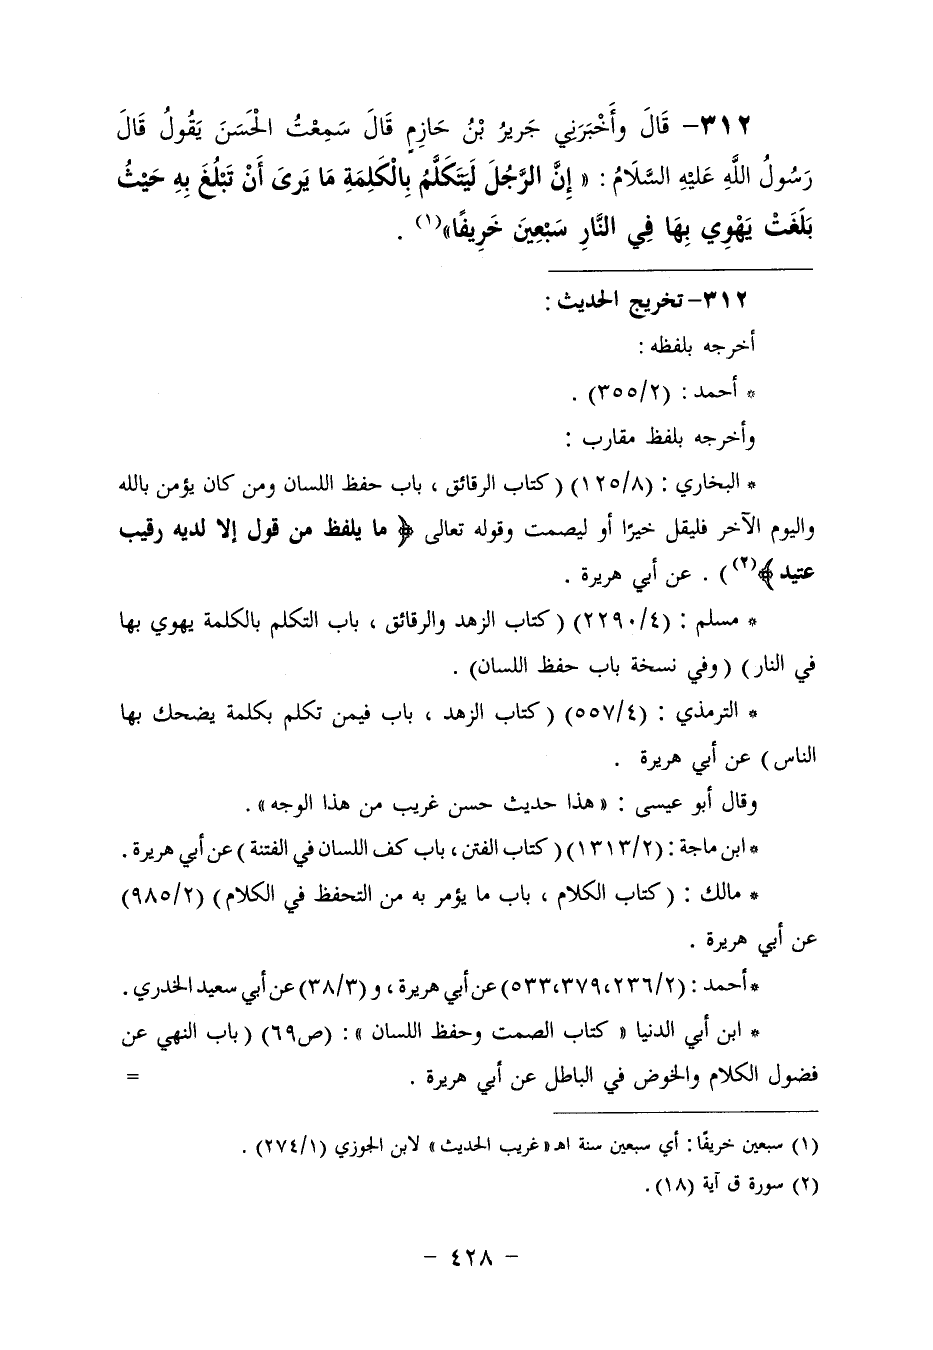 ٣١٢- قَالَ وأَخْبَرَنِي جَرِيرُ بْنُ حَازِمٍ قَالَ سَمِعْتُ الْحَسَنَ يَقُولُ قَالَ
رَسُولُ اللَّهِ عَلَيْهِ السَّلَامُ : « إِنَّ الرَّجُلَ لَيَتَكَلَّمُ بِالْكَلِمَةِ مَا يَرىَ أَنْ تَبْلُغَ بِهِ حَيْثُ
بَلَغَتْ يَهْوِي بِهَا فِي النَّارِ سَبْعِينَ خَرِيفًا»(١) .
٣١٢- تخريج الحديث :
أخرجه بلفظه :
* أحمد : (٣٥٥/٢) .
وأخرجه بلفظ مقارب :
* البخاري : (١٢٥/٨) ( كتاب الرقائق ، باب حفظ اللسان ومن كان يؤمن بالله
واليوم الآخر فليقل خيرًا أو ليصمت وقوله تعالى ﴿ ما يلفظ من قول إلا لديه رقيب
عتيد ﴾(٢) ) . عن أبي هريرة .
* مسلم : (٢٢٩٠/٤) ( كتاب الزهد والرقائق ، باب التكلم بالكلمة يهوي بها
في النار ) ( وفي نسخة باب حفظ اللسان) .
* الترمذي : (٥٥٧/٤) ( كتاب الزهد ، باب فيمن تكلم بكلمة يضحك بها
الناس ) عن أبي هريرة .
وقال أبو عيسى : « هذا حديث حسن غريب من هذا الوجه» .
* ابن ماجة : (١٣١٣/٢) ( كتاب الفتن ، باب كف اللسان في الفتنة ) عن أبي هريرة .
* مالك : ( كتاب الكلام ، باب ما يؤمر به من التحفظ في الكلام ) (٩٨٥/٢)
عن أبي هريرة .
* أحمد : (٥٣٣،٣٧٩،٢٣٦/٢) عن أبي هريرة ، و (٣٨/٣) عن أبي سعيد الخدري .
* ابن أبي الدنيا « كتاب الصمت وحفظ اللسان » : (ص٦٩) ( باب النهي عن
فضول الكلام والخوض في الباطل عن أبي هريرة . =
(١) سبعين خريفًا : أي سبعين سنة اهـ « غريب الحديث » لابن الجوزي (٢٧٤/١) .
(٢) سورة ق آية (١٨) .
- ٤٢٨ -